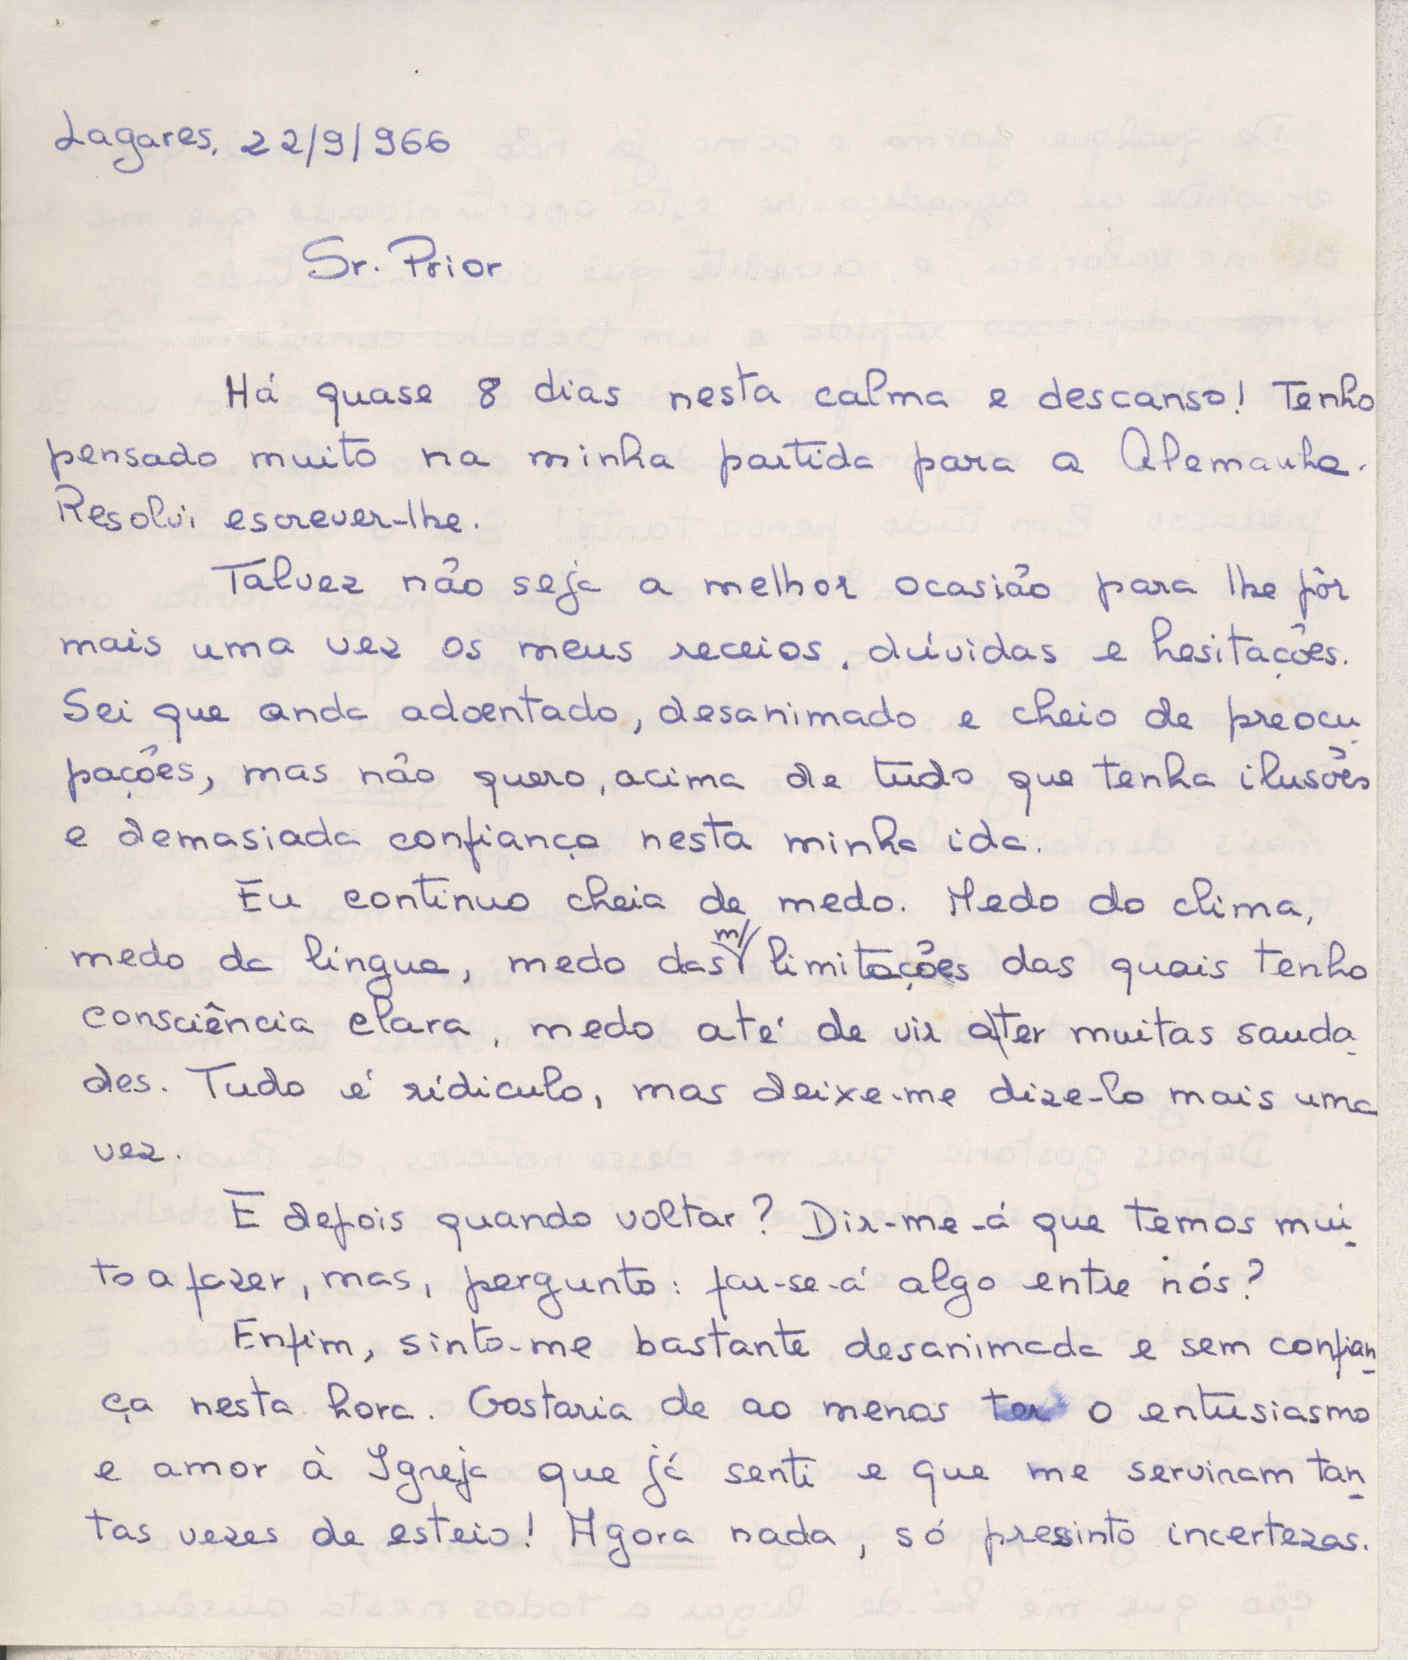 Lagares, 22/9/966
Sr. Prior
Há quase 8 dias nesta calma e descanso! Tenho
pensado muito na minha partida para a Alemanha.
Resolvi escrever-lhe.
Talvez não seja a melhor ocasião para lhe pôr
mais uma vez os meus receios, dúvidas e hesitações.
Sei que anda adoentado, desanimado e cheio de preocu-
pações, mas não quero, acima de tudo que tenha ilusões
e demasiada confiança nesta minha ida.
Eu continuo cheia de medo. Medo do clima,
medo da língua, medo das m/ limitações das quais tenho
consciência clara, medo até de vir a ter muitas sauda-
des. Tudo é rídiculo, mas deixe-me dize-lo mais uma
vez.
E depois quando voltar? Dir-me-á que temos mui-
to a fazer, mas, pergunto: far-se-á algo entre nós?
Enfim, sinto-me bastante desanimada e sem confian-
ça nesta hora. Gostaria de ao menos ter o entusiasmo
e amor à Igreja que já senti e que me serviram tan-
tas vezes de esteio! Agora nada, só pressinto incertezas.